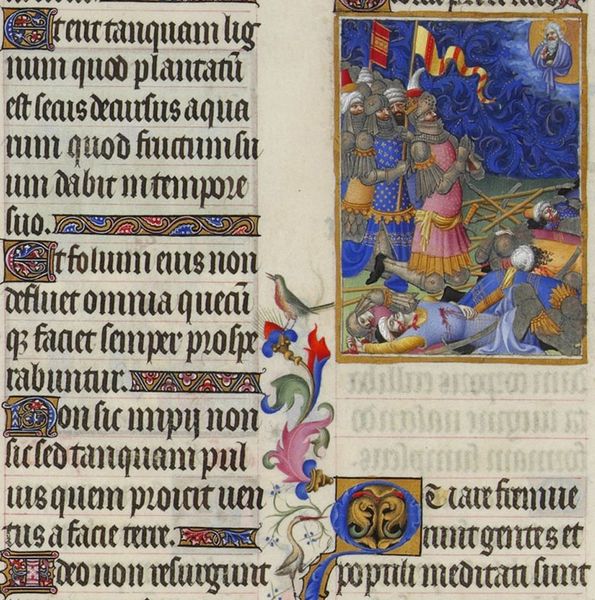 Et erit tanquam lig
num quod plantatū
est secus decursus aqua
rum quod fructum su
um dabit in tempore
suo.
Et folium eius non
defluet omnia quecū
q3 faciet semper prospe
rabuntur.
Non sic impij non
sic sed tanquam pul
uis quem proicit uen
tus a facie terre.
Ideo non resurgunt
Quare fremue
runt gentes et
populi meditati sunt